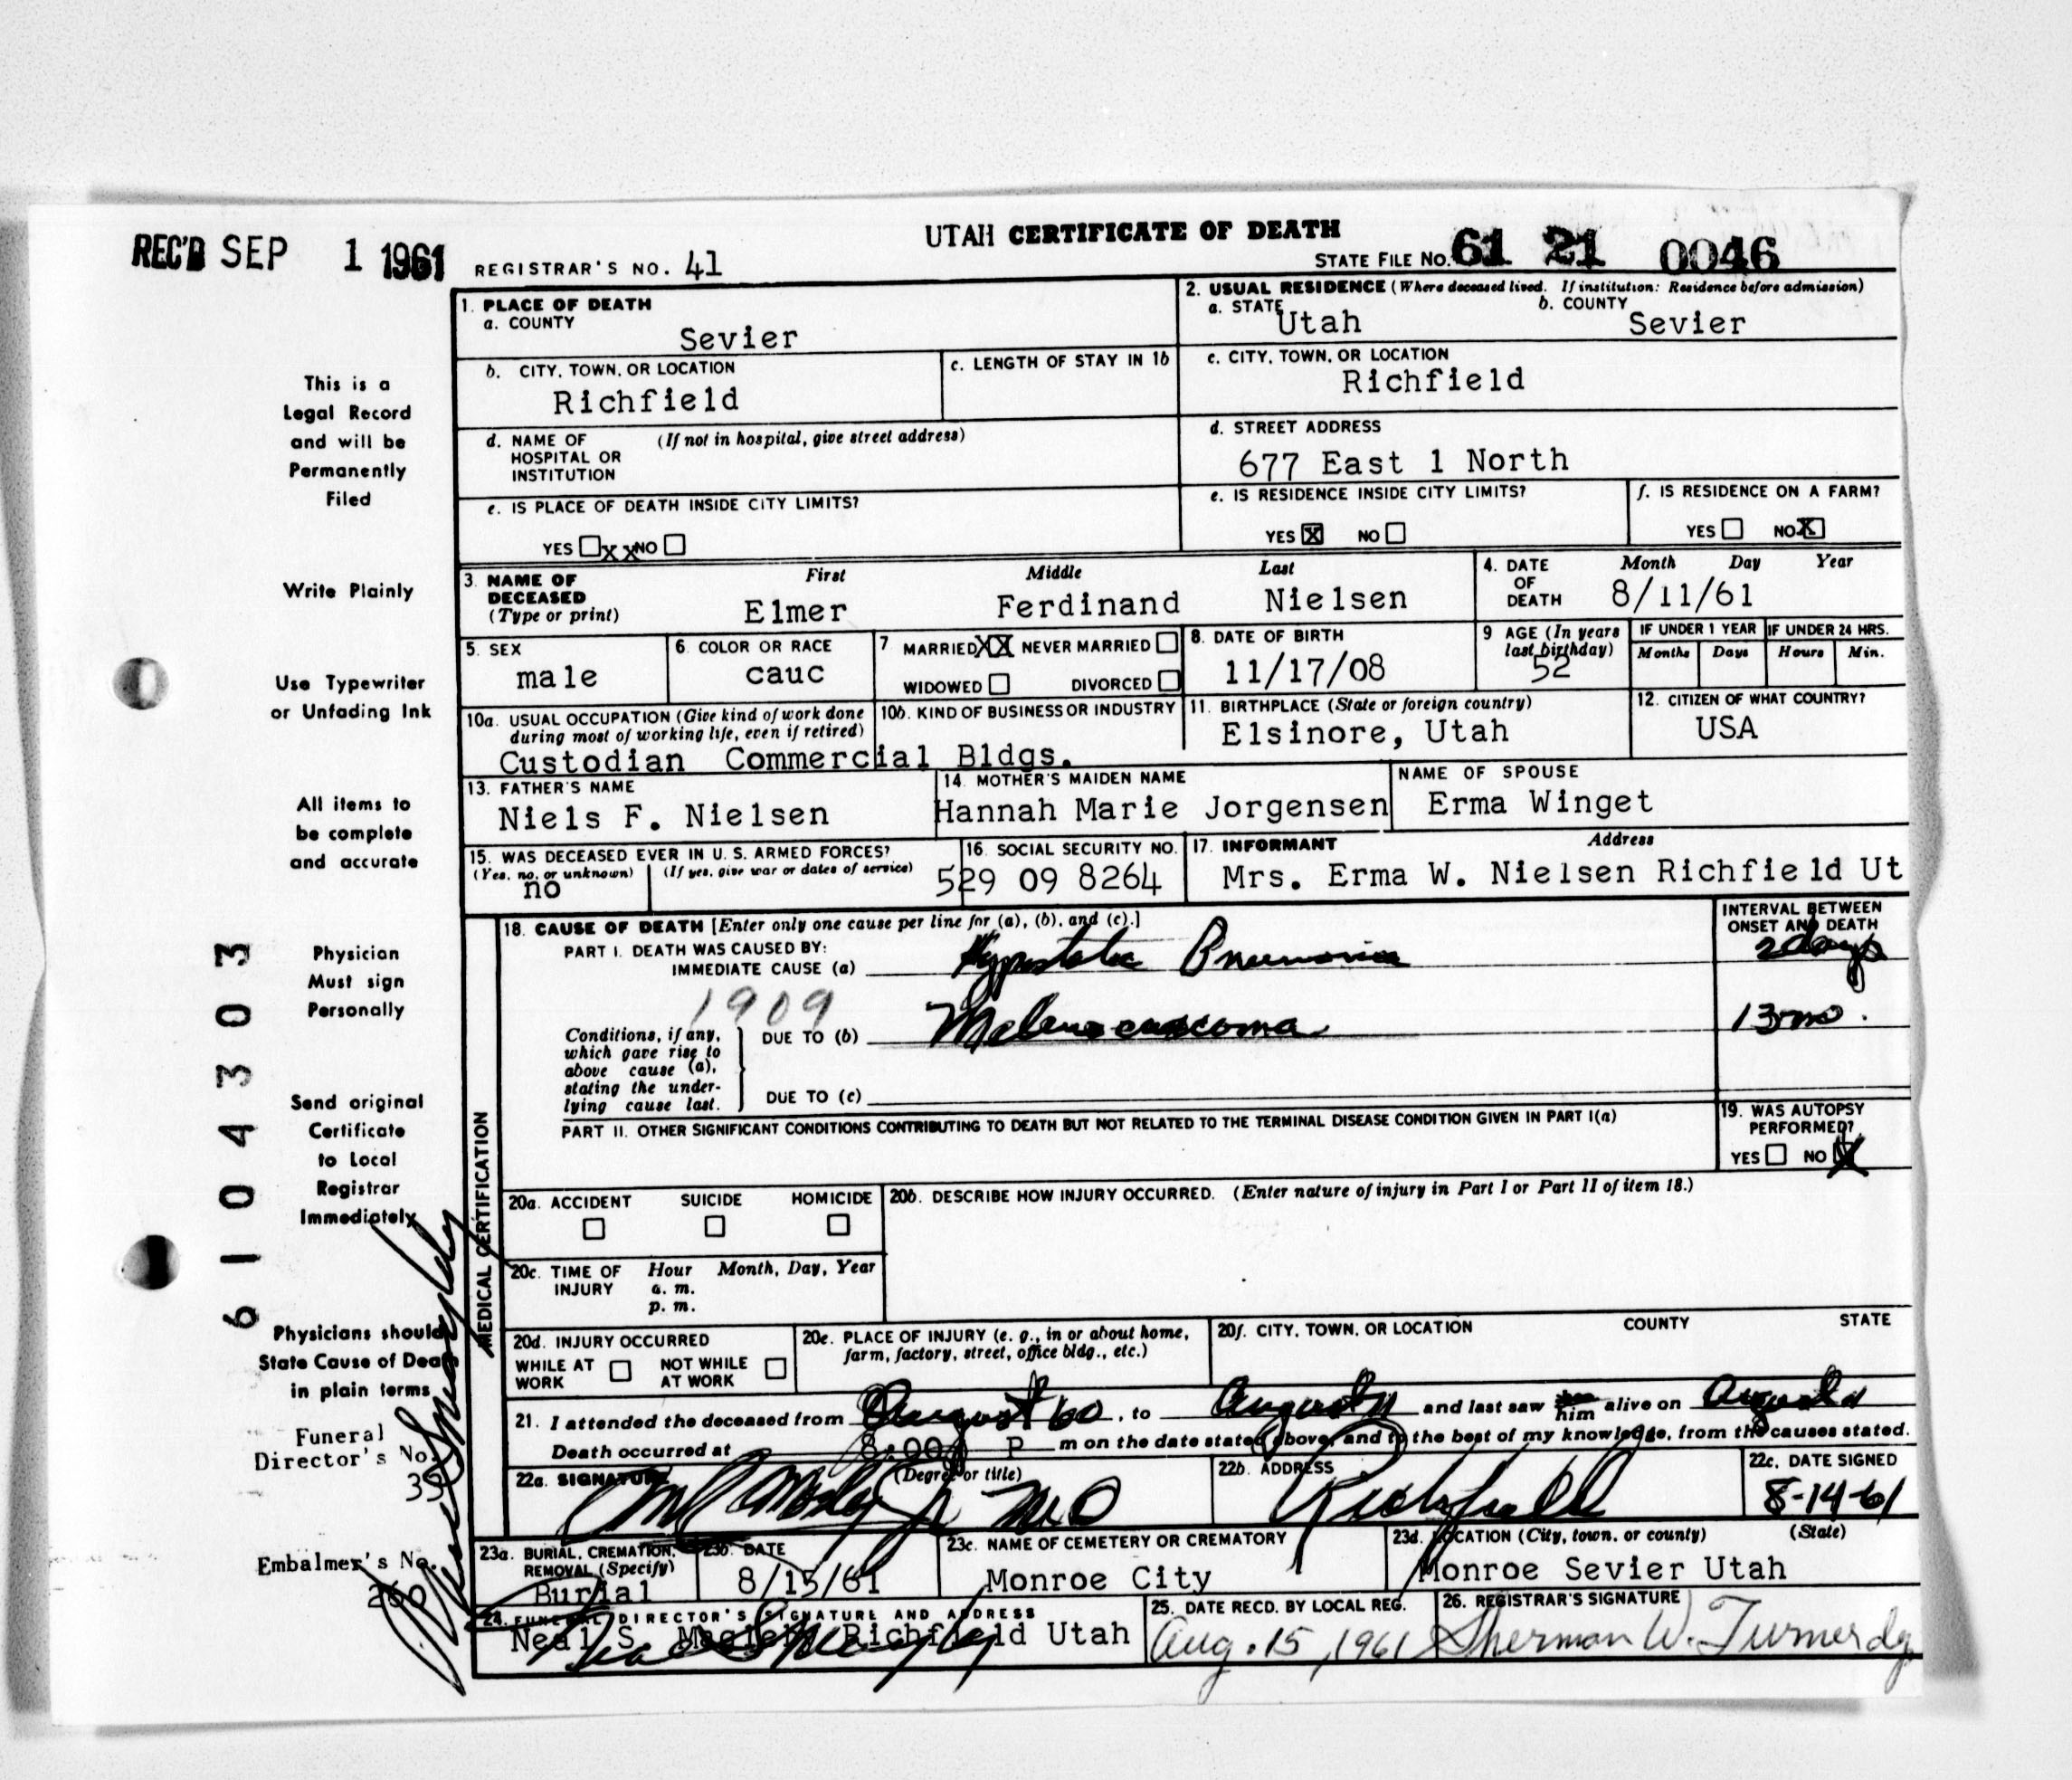 UTAH CERTIFICATE OF DEATH
REC'D SEP 1 1961
REGISTRAR'S NO. 41
STATE FILE NO. 61 21 0046
This is a
Legal Record
and will be
Permanently
Filed
Write Plainly
Use Typewriter
or Unfading Ink
All items to
be complete
and accurate
Physician
Must sign
Personally
Send original
Certificate
to Local
Registrar
Immediately
Physicians should
State Cause of Death
in plain terms
Funeral
Director's No.
Embalmer's No.
260
6104303
1. PLACE OF DEATH
a. COUNTY
Sevier
2. USUAL RESIDENCE (Where deceased lived. If institution: Residence before admission)
a. STATE Utah b. COUNTY Sevier
b. CITY, TOWN, OR LOCATION
Richfield
c. LENGTH OF STAY IN 1b
c. CITY, TOWN, OR LOCATION
Richfield
d. NAME OF (If not in hospital, give street address)
HOSPITAL OR
INSTITUTION
d. STREET ADDRESS
677 East 1 North
e. IS PLACE OF DEATH INSIDE CITY LIMITS?
YES XX NO
e. IS RESIDENCE INSIDE CITY LIMITS?
YES X NO
f. IS RESIDENCE ON A FARM?
YES NO X
3. NAME OF DECEASED (Type or print)
First Middle Last
Elmer Ferdinand Nielsen
4. DATE OF DEATH Month Day Year
8/11/61
5. SEX
male
6. COLOR OR RACE
cauc
7 MARRIED XX NEVER MARRIED
WIDOWED DIVORCED
8. DATE OF BIRTH
11/17/08
9 AGE (In years last birthday)
52
IF UNDER 1 YEAR IF UNDER 24 HRS.
Months Days Hours Min.
10a. USUAL OCCUPATION (Give kind of work done
during most of working life, even if retired)
10b. KIND OF BUSINESS OR INDUSTRY
Custodian Commercial Bldgs.
11. BIRTHPLACE (State or foreign country)
Elsinore, Utah
12. CITIZEN OF WHAT COUNTRY?
USA
13. FATHER'S NAME
Niels F. Nielsen
14. MOTHER'S MAIDEN NAME
Hannah Marie Jorgensen
NAME OF SPOUSE
Erma Winget
15. WAS DECEASED EVER IN U. S. ARMED FORCES?
(Yes, no, or unknown) (If yes, give war or dates of service)
no
16. SOCIAL SECURITY NO.
529 09 8264
17. INFORMANT Address
Mrs. Erma W. Nielsen Richfield Ut
MEDICAL CERTIFICATION
18. CAUSE OF DEATH [Enter only one cause per line for (a), (b), and (c).]
INTERVAL BETWEEN
ONSET AND DEATH
PART I. DEATH WAS CAUSED BY:
IMMEDIATE CAUSE (a) Hypostatic Pneumonia 2 days
1909
Conditions, if any,
which gave rise to
above cause (a),
stating the under-
lying cause last.
DUE TO (b) 13 mo.
DUE TO (c)
PART II. OTHER SIGNIFICANT CONDITIONS CONTRIBUTING TO DEATH BUT NOT RELATED TO THE TERMINAL DISEASE CONDITION GIVEN IN PART I(a)
19. WAS AUTOPSY
PERFORMED?
YES NO X
20a. ACCIDENT SUICIDE HOMICIDE
20b. DESCRIBE HOW INJURY OCCURRED. (Enter nature of injury in Part I or Part II of item 18.)
20c. TIME OF INJURY Hour Month, Day, Year
a. m.
p. m.
20d. INJURY OCCURRED
WHILE AT WORK NOT WHILE AT WORK
20e. PLACE OF INJURY (e. g., in or about home,
farm, factory, street, office bldg., etc.)
20f. CITY, TOWN, OR LOCATION COUNTY STATE
21. I attended the deceased from August 60, to August 11 and last saw him alive on August 11
Death occurred at 8:00 P m on the date stated above, and to the best of my knowledge, from the causes stated.
22a. SIGNATURE (Degree or title)
MD
22b. ADDRESS
Richfield
22c. DATE SIGNED
8-14-61
23a. BURIAL, CREMATION,
REMOVAL (Specify)
Burial
23b. DATE
8/15/61
23c. NAME OF CEMETERY OR CREMATORY
Monroe City
23d. LOCATION (City, town, or county) (State)
Monroe Sevier Utah
24. FUNERAL DIRECTOR'S SIGNATURE AND ADDRESS
Neal S. Richfield Utah
25. DATE RECD. BY LOCAL REG.
Aug. 15, 1961
26. REGISTRAR'S SIGNATURE
Sherman W. Turner